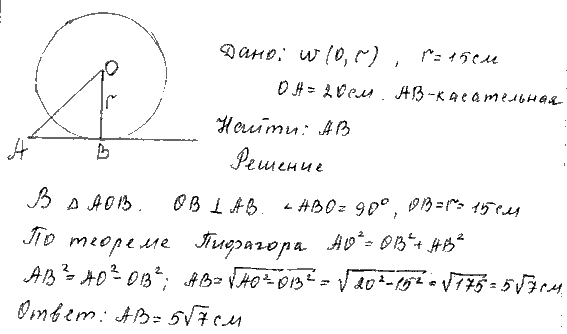 O
r
A
B
Дано: w(O, r), r = 15 см
OA = 20 см. AB - касательная
Найти: AB
Решение
В △ AOB. OB ⊥ AB. ∠ABO = 90°, OB = r = 15 см
По теореме Пифагора AO² = OB² + AB²
AB² = AO² - OB²; AB = √AO² - OB² = √20² - 15² = √175 = 5√7 см
Ответ: AB = 5√7 см